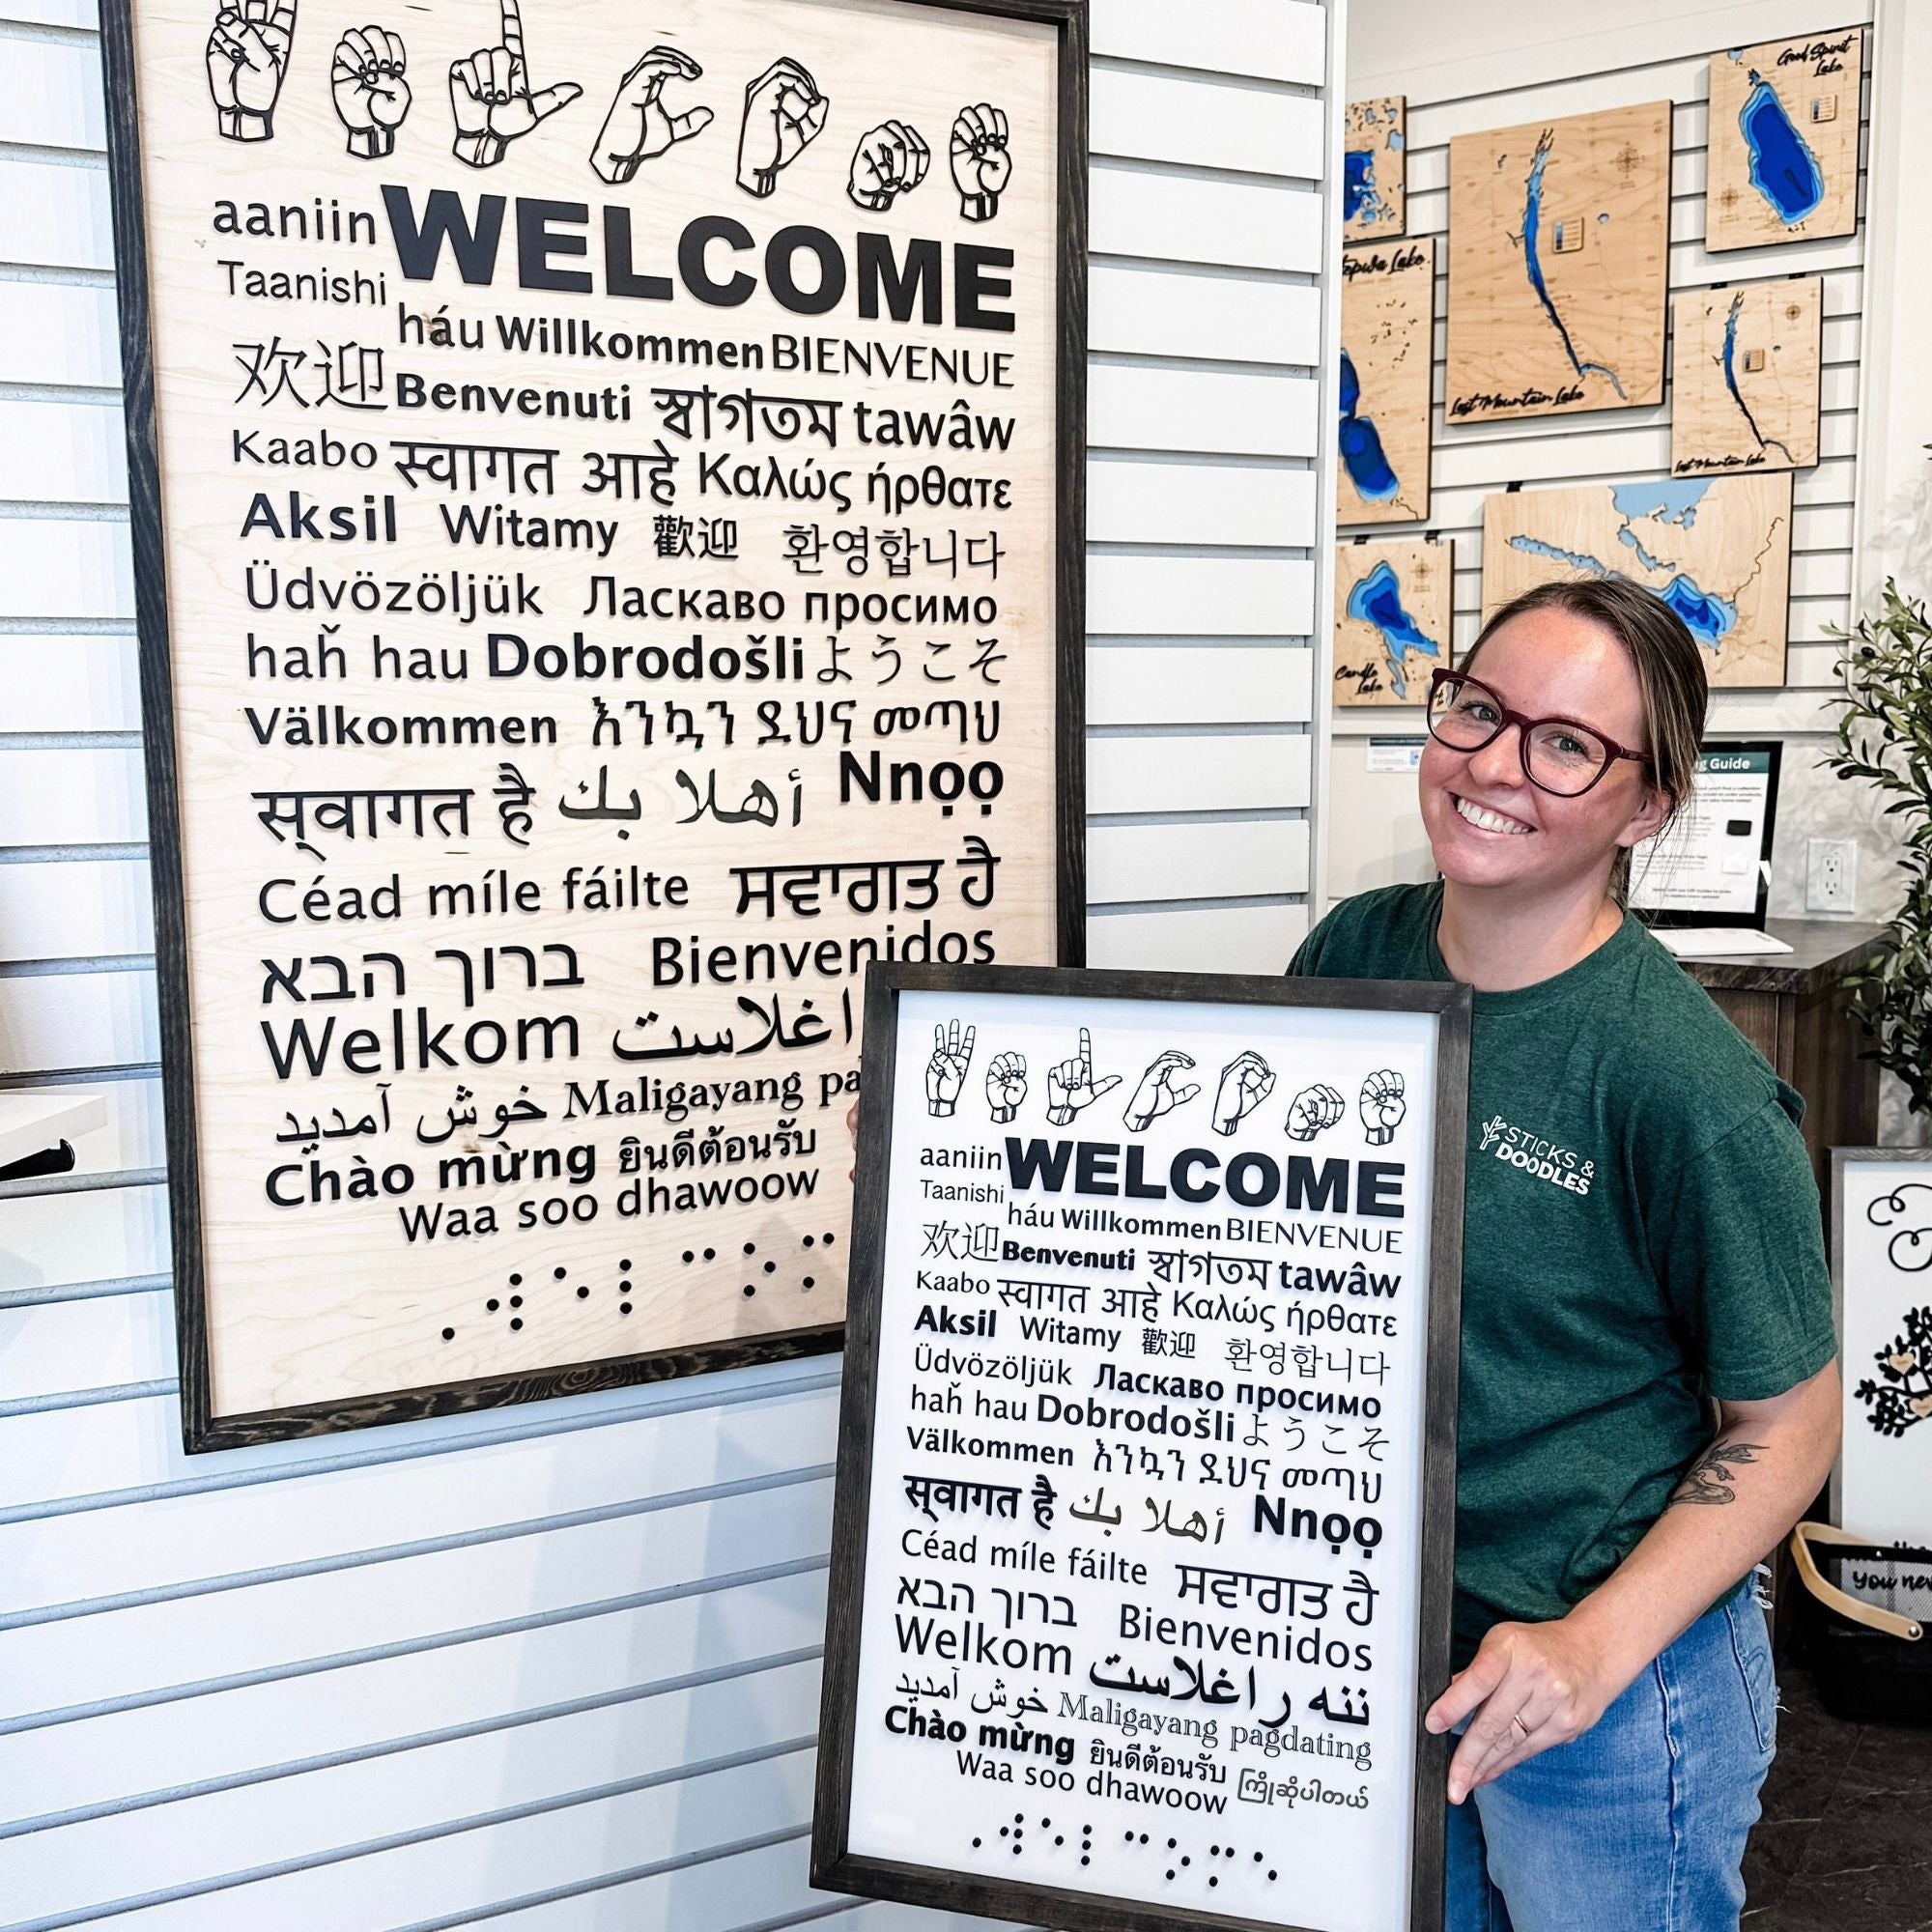 aaniin WELCOME
Taanishi
háu Willkommen BIENVENUE
欢迎 Benvenuti স্বাগতম tawâw
Kaabo स्वागत आहे Καλώς ήρθατε
Aksil Witamy 歡迎 환영합니다
Üdvözöljük Ласкаво просимо
haȟ hau Dobrodošli ようこそ
Välkommen እንኳን ደህና መጣህ
स्वागत है أهلا بك Nnọọ
Céad míle fáilte ਸਵਾਗਤ ਹੈ
ברוך הבא Bienvenidos
Welkom راغلاست
خوش آمدید Maligayang pa
Chào mừng ยินดีต้อนรับ
Waa soo dhawoow
aaniin WELCOME
Taanishi
háu Willkommen BIENVENUE
欢迎 Benvenuti স্বাগতম tawâw
Kaabo स्वागत आहे Καλώς ήρθατε
Aksil Witamy 歡迎 환영합니다
Üdvözöljük Ласкаво просимо
haȟ hau Dobrodošli ようこそ
Välkommen እንኳን ደህና መጣህ
स्वागत है أهلا بك Nnọọ
Céad míle fáilte ਸਵਾਗਤ ਹੈ
ברוך הבא Bienvenidos
Welkom ننه راغلاست
خوش آمدید Maligayang pagdating
Chào mừng ยินดีต้อนรับ
Waa soo dhawoow ကြိုဆိုပါတယ်
STICKS &
DOODLES
Good Spirit
Lake
epwa Lake
Last Mountain Lake
Last Mountain Lake
Candle
Lake
g Guide
you nev